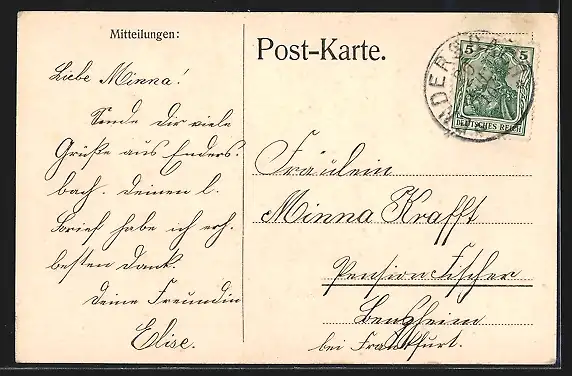 Mitteilungen:
Liebe Minna!
Sende dir viele
Grüße aus Enders-
bach. Deinen l.
Brief habe ich erh.
besten Dank.
Deine Freundin
Elise.
Post-Karte.
5 5
DEUTSCHES REICH
Fräulein
Minna Krafft
Pension Fischer
Bensheim
bei Frankfurt.